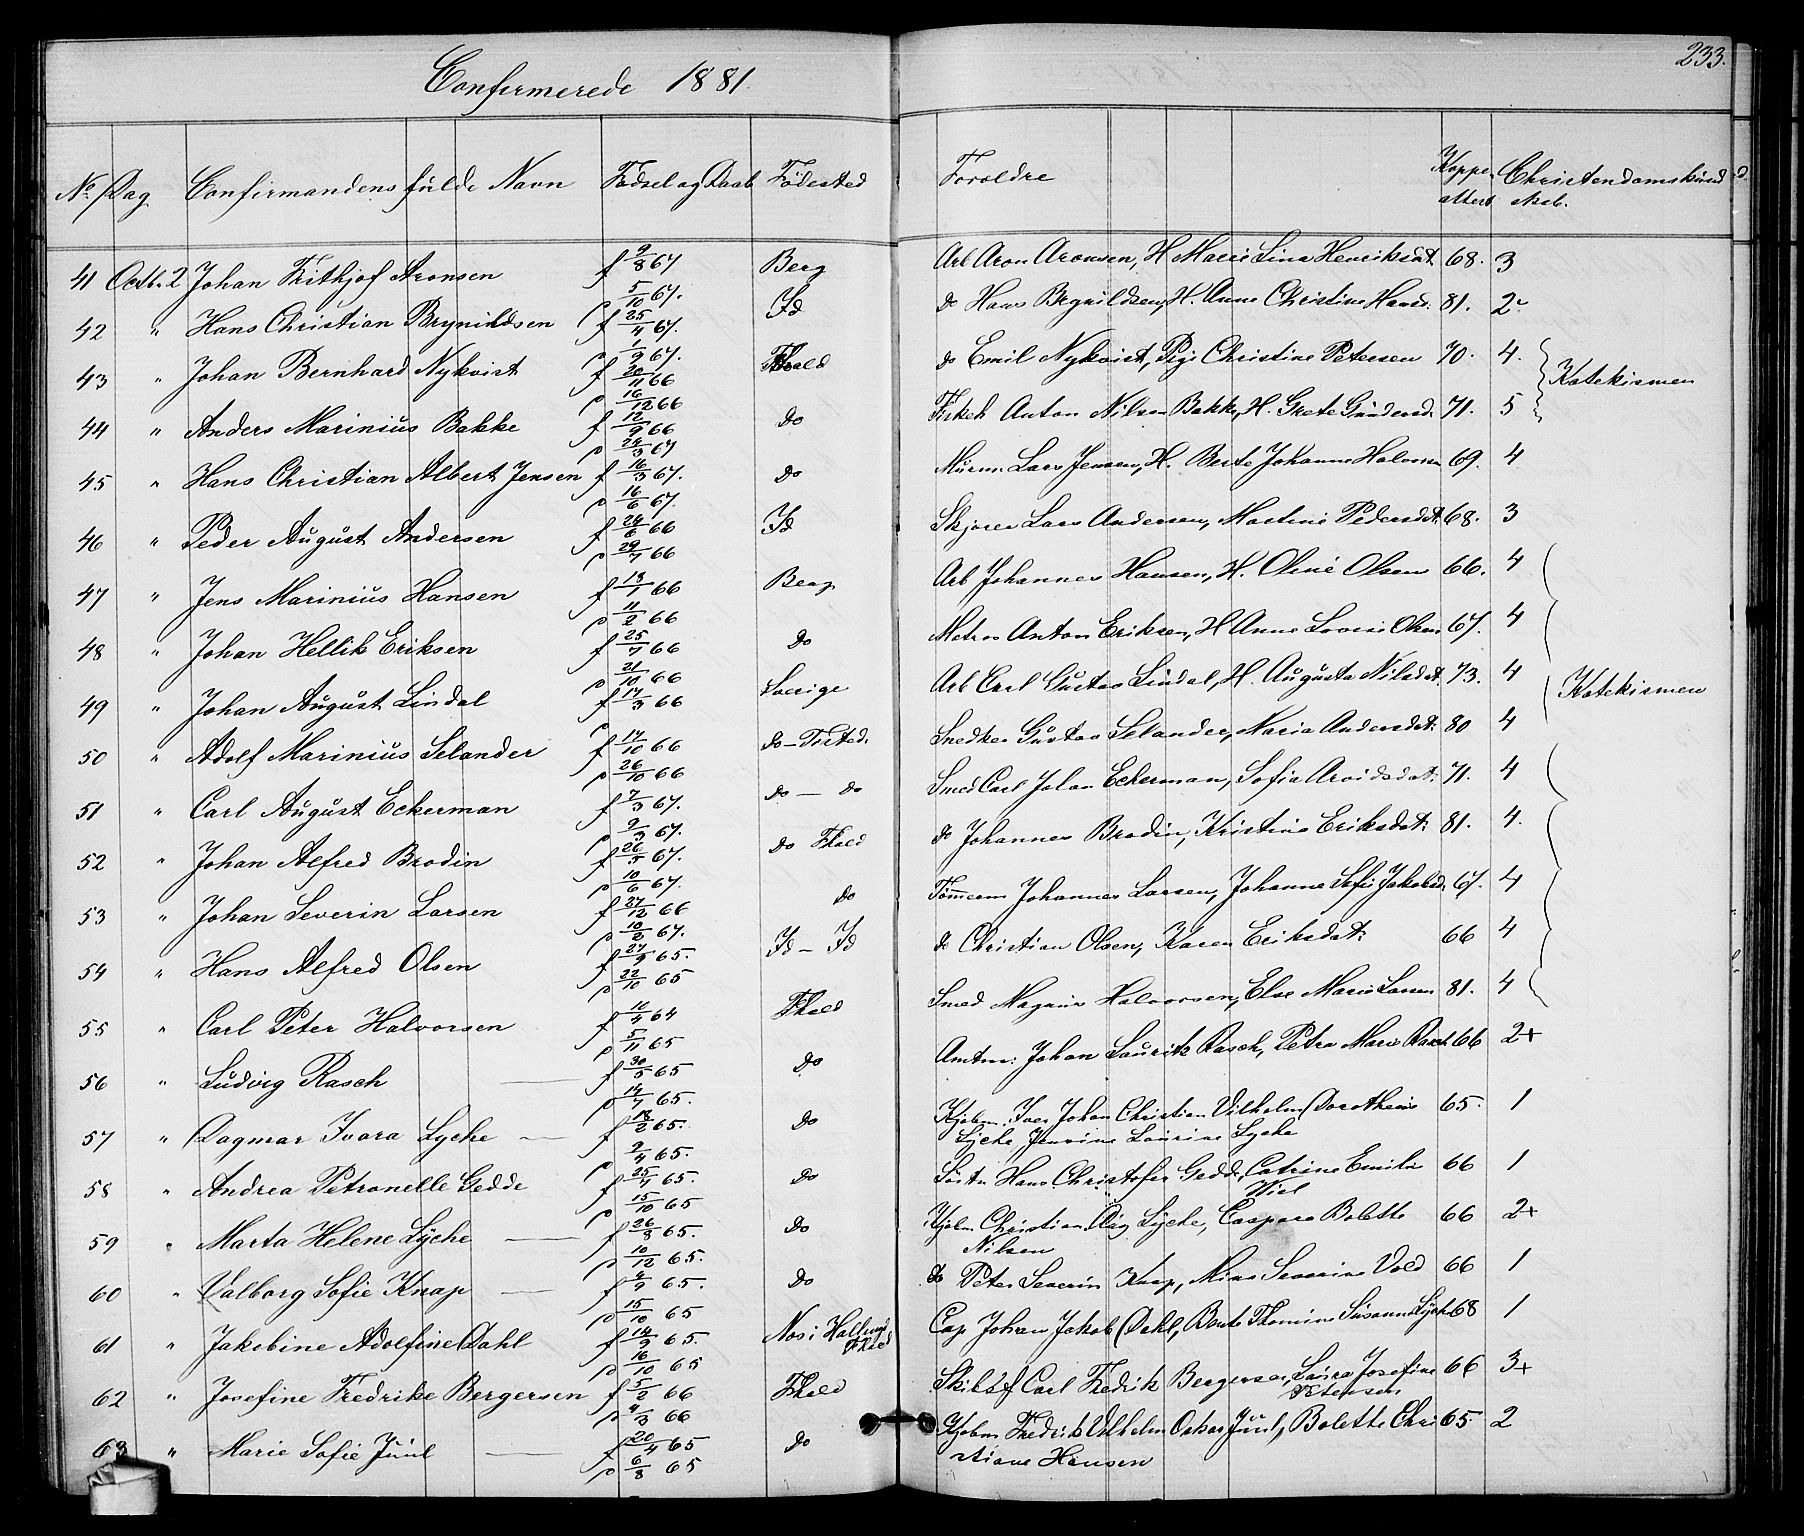 Confirmerede 1881.
233.
No Dag Confirmandens fulde Navn Fødsel og Daab Fødested Foreldre Koppe attest Christendomskund skab.
41 Octb. 2 Johan Frithjof Aronsen f 9/8 67 Berg Arb Aron Aronsen, H Marie Lina Henriksdt. 68. 3
d 5/10 67.
42 " Hans Christian Brynildsen f 25/4 67. Id do Hans Brynildsen, H. Anne Christine Hansd. 81. 2
d 1/9 67.
43 " Johan Bernhard Nykvist f 20/11 66 Fhald do Emil Nykvist, Pige Christine Petersen 70. 4.
d 16/12 66 Katekismen
44 " Anders Marinius Bakke f 12/9 66 do Anton Nilsen Bakke, H. Grete Gundersd. 71. 5
d 24/3 67
45 " Hans Christian Albert Jensen f 16/3 67. do Murm Lars Jensen, H. Berte Johanne Halvorsen 69. 4
d 16/6 67.
46 " Peder August Andersen f 24/6 66 Id Lars Andersen, Martine Pedersdt. 68. 3
d 29/7 66
47 " Jens Marinius Hansen f 13/1 66 Berg Arb Johannes Hansen, H. Oline Olsen 66. 4
d 11/2 66
48 " Johan Hellik Eriksen f 25/7 66 do Matros Anton Eriksen, H Anne Lovise Olsen 67. 4
d 21/10 66
49 " Johan August Lindal f 17/3 66 Sverige Arb Carl Gustav Lindal, H. Augusta Nilsdat. 73. 4 Katekismen
d
50 " Adolf Marinius Selander f 17/10 66 do – Tisted. Snedker Gustav Selander, Maria Andersdat: 80 4
d 26/10 66
51 " Carl August Eckerman f 7/3 67. do – do Smed Carl Johan Eckerman, Sofia Arvidsdat: 71. 4
d 9/3 67.
52 " Johan Alfred Brodin f 26/5 67. do Fhald do Johannes Brodin, Kristine Eriksdat: 81. 4.
d 10/6 67.
53 " Johan Severin Larsen f 27/12 66 do Tømerm Johannes Larsen, Johanne Sofie Jakobsd. 67. 4
d 10/2 67.
54 " Hans Alfred Olsen f 27/9 65. Id – Id do Christian Olsen, Karen Eriksdat: 66 4
d 22/10 65
55 " Carl Peter Halvorsen f 16/4 64 Fhald Smed Magnus Halvorsen, Else Marie Larsen 81. 4
d 5/11 65
56 " Ludvig Rasch f 30/5 65 do Amtm: Johan Lauritz Rasch, Petra Marie Rasch 66 2+
d 14/7 65.
57 " Dagmar Ivara Lyche f 18/2 65. do Kjøbm. Iver Johan Christian Vilhelm Dorotheus 65. 1
d 9/4 65. Lyche Jensine Laurine Lyche
58 " Andrea Petronelle Gedde f 25/7 65. do Hans Christofer Gedde, Catrine Emilie 66 1
d 15/10 65 Wiel
59 " Marta Helene Lyche f 26/8 65. do Kjøbm Christian Aug Lyche, Caspara Bolette 66 2+
d 10/12 65. Nilsen
60 " Valborg Sofie Knap f 4/9 65. do do Peter Severin Knap, Mina Severine Vold 66 1
d 15/10 65
61 " Jakobine Adolfine Dahl f 14/9 65. Cap Johan Jakob Dahl, Bente Thomine Susanna Lyche 68 1
d 16/10 65
62 " Josefine Fredrike Bergersen f 5/2 66 Fhald Carl Fredrik Bergersen, Laura Josefine 66 3+
d 4/3 66 Petersen
63 " Marie Sofie Juul f 20/4 65 do Kjøbm Fredrik Vilhelm Oskar Juul, Bolette Chri 65. 2
d 6/8 65 stiane Hansen